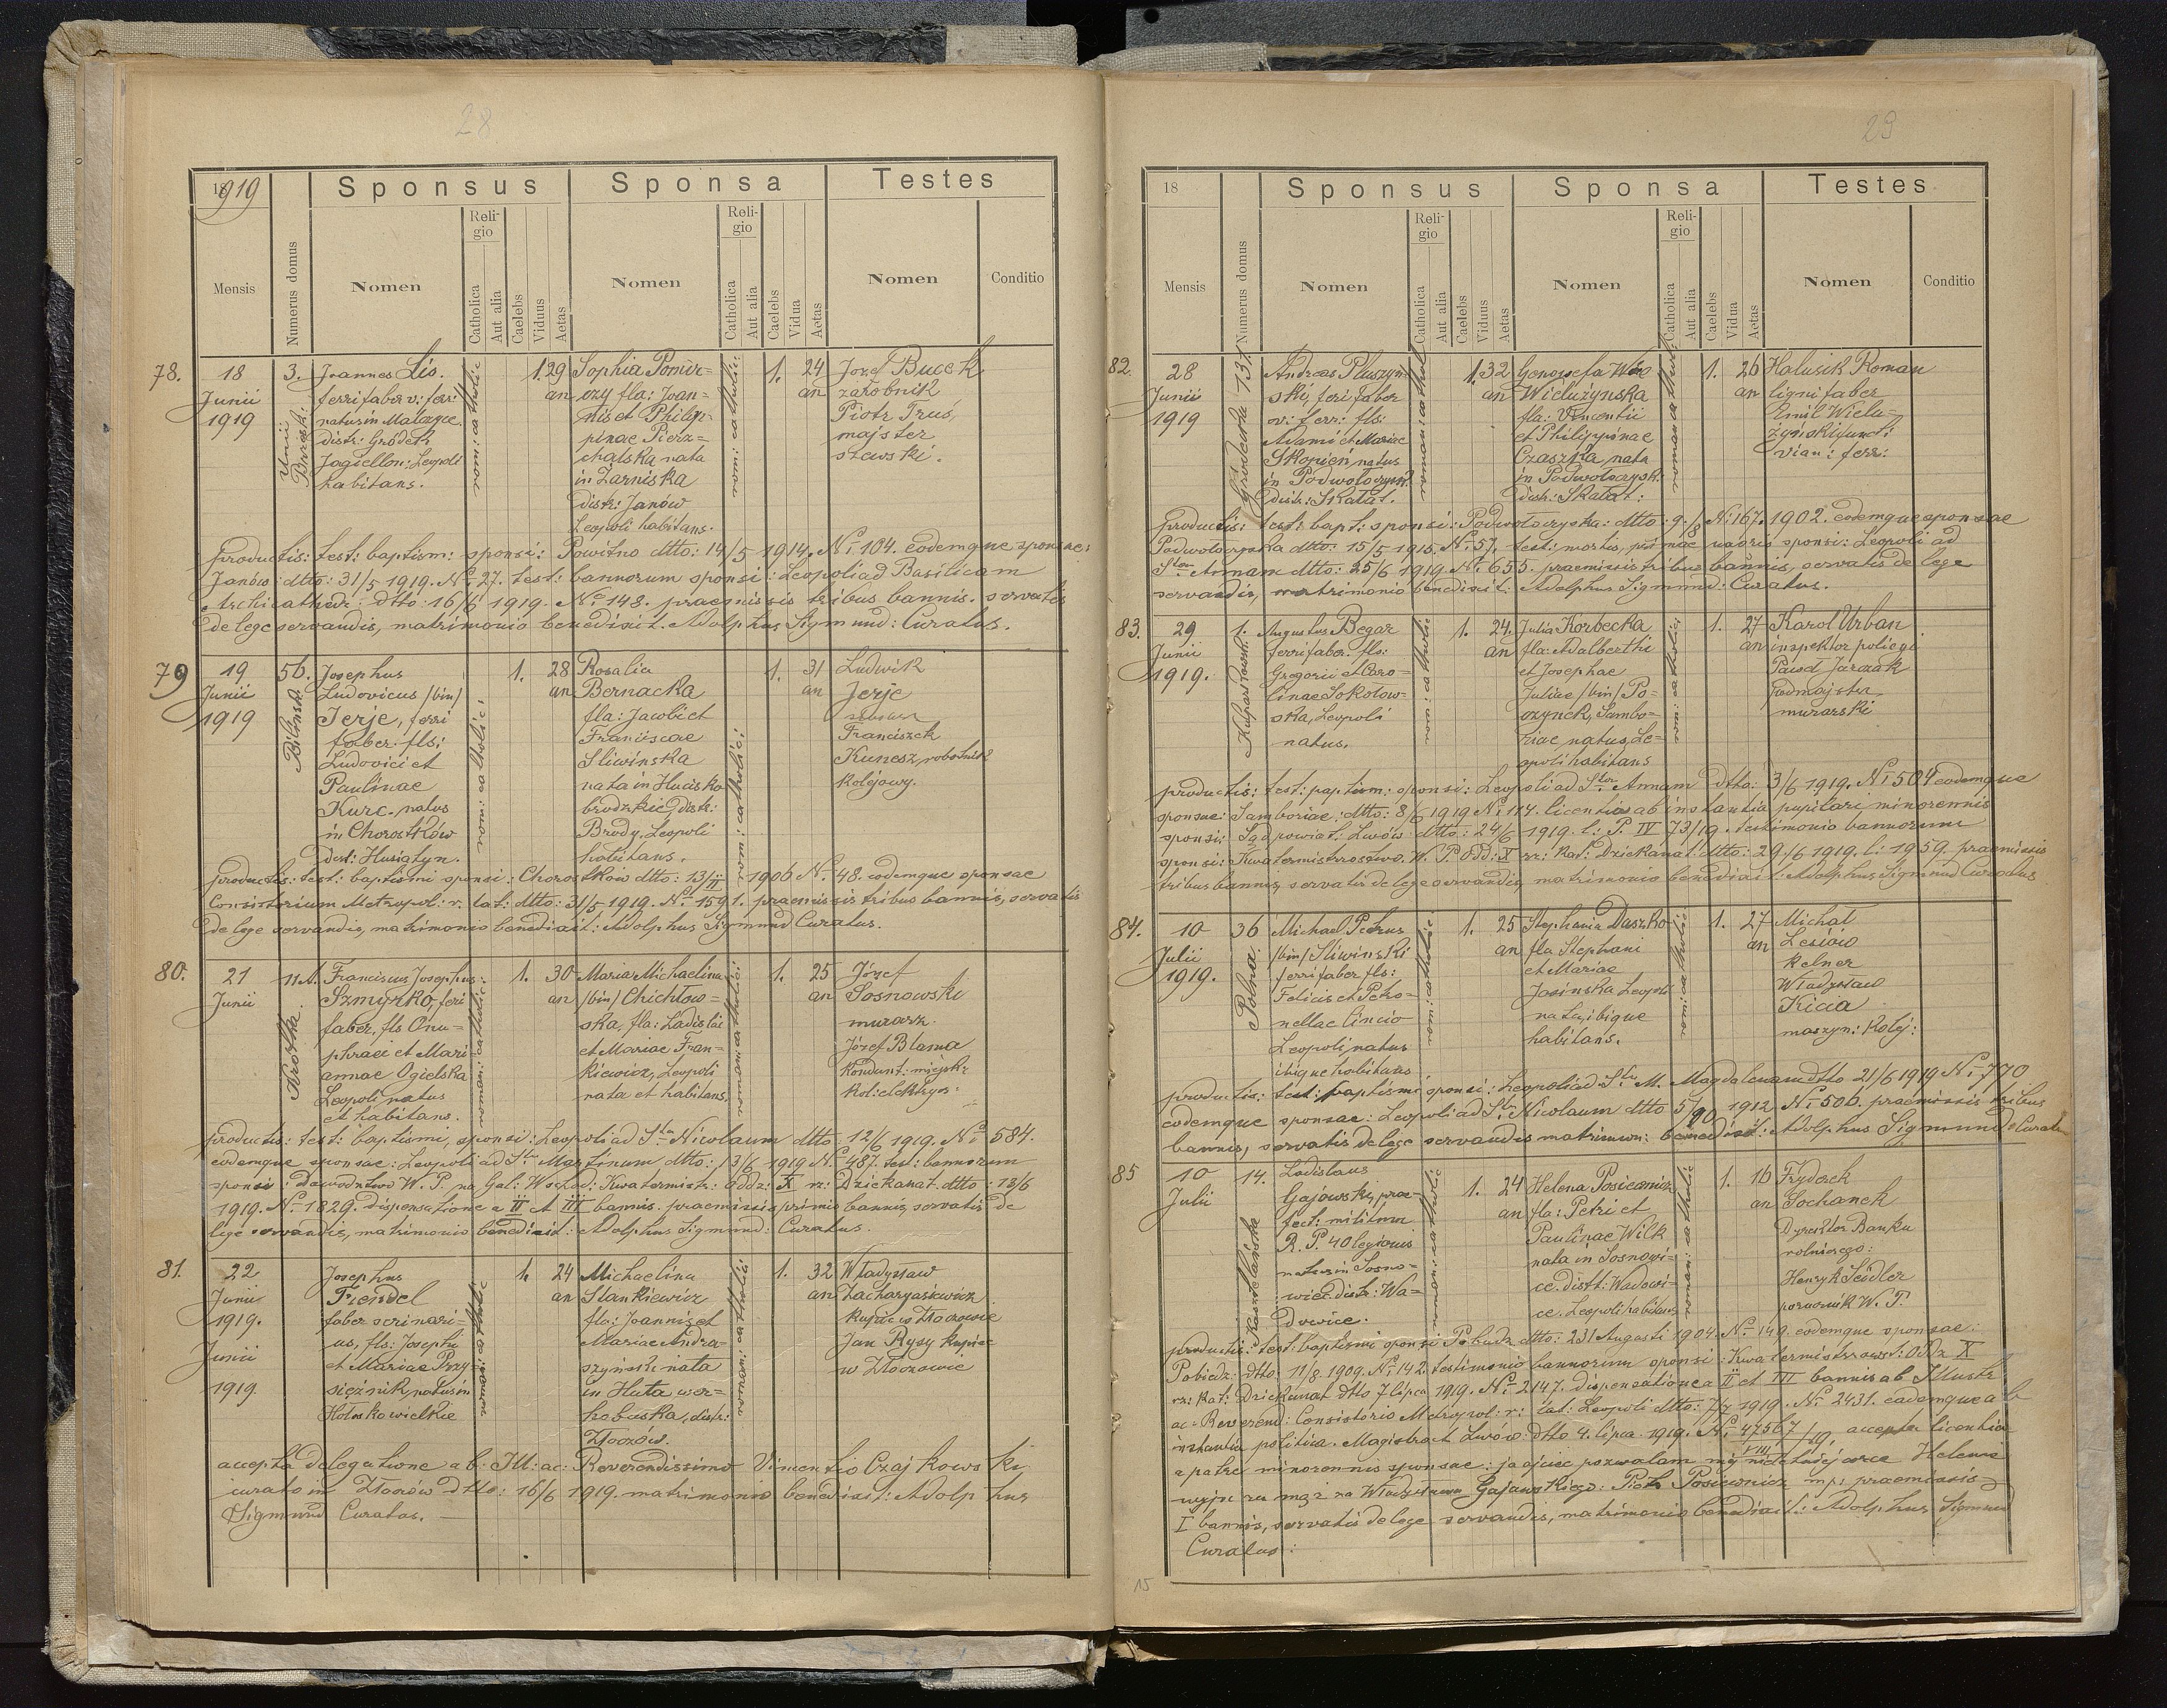 28
1919
Sponsus Sponsa Testes
Mensis Numerus domus Nomen Religio Catholica Aut alia Caelebs Viduus Aetas Nomen Religio Catholica Aut alia Caelebs Vidua Aetas Nomen Conditio
78. 18 3. Joannes Lis. rom: catholic 1. 29 Sophia Pomir= rom: catholic: 1. 24 Józef Bucek
Junii Unii ferrifaber v: ferr: an ozy fla: Joan= an zarobnik
1919 Brzesk: natus in Malczyce nis et Philip= Piotr Truś,
distr: Gródek pinae Pierz= majster
Jagiellon: Leopoli chalska nata szewski.
habitans. in Żarniska
distr: Janów
Leopoli habitans.
productis: test: baptism: sponsi: Powitno dtto: 14/5 1914. No 104. eodemque sponsae:
Janów: dtto: 31/5 1919. No 27. test: bannorum sponsi: Leopoli ad Basilicam
Archicathedr: dtto: 16/6 1919. No 148. praemissis tribus bannis. servatis
de lege servandis, matrimonio benedixit. Adolphus Sigmund: Curatus.
79 19 56. Josephus rom: catholic: 1. 28 Rosalia rom: catholic: 1. 31 Ludwik
Junii Bilińsk Ludovicus /bin/ an Bernacka an Jerje
1919 Jerje, ferri fla: Jacobi et
faber: fls: Franciscae Franciszek
Ludovici et Sliwinska Kunesz, robotnik
Paulinae nata in Hucisko kolejowy.
Kurc. natus brodzkie, distr:
in Chorostków Brody, Leopoli
dist: Husiatyn. habitans.
productis: test: baptismi sponsi: Chorostkow dtto: 13/II 1906 No 48. eodemque sponsae
Consistorium Metropol: r. lat: dtto: 31/5 1919. No 1591. praemissis tribus bannis, servatis
de lege servandis, matrimonio benedixit: Adolphus Sigmund Curatus.
80. 21 11A. Franciscus Josephus: roman: catholic: 1. 30 Maria Michaelina roman: catholic: 1. 25 Józef
Junii Krótka. Szmyrko, feri an /bin/ Chichłow= an Sosnowski
faber, fls Onu= ska, fla: Ladislai murarz.
phraei et Mari= et Mariae Fran= Józef Blama
annae Ogielska kiewicz, Leopoli kondukt: miejsk:
Leopoli natus nata et habitans. kol: elektrycz:
et habitans.
productis: test: baptismi, sponsi: Leopoli ad Stm Nicolaum dtto: 12/6 1919. No 584.
eodemque sponsae: Leopoli ad Stm Martinum dtto: 13/6 1919 No 487. test: bannorum
sponsi: Dowództwo W. P. na Gal: Wschod: Kwatermistr: Oddz: X rz: Dziekanat. dtto: 18/6
1919. No 1829. dispensatione a II et III bannis. praemissis primis bannis, servatis de
lege servandis, matrimonio benedixit: Adolphus Sigmund: Curatus.
81. 22 Josephus roman: catholic 1. 24 Michaelina roman: catholic: 1. 32 Władysław
Junii Friendel an Stankiewicz an Zacharyasiewicz
1919. faber scrinari= fla: Joannis et kupiec w Złoczowie
Junii us, fls: Josephi Mariae Andra= Jan Rysy kupiec
1919. et Mariae Przy szyńsk: nata w Złoczowie
sięźnik, natus in in Huta wer=
Hołoskowielkie hobuska, distr:
Złoczów.
accepta delegatione ab: Ill: ac: Reverendissimo Vincentio Czajkowski
curato in Złoczów dtto: 16/6 1919. matrimonio benedixit: Adolphus
Sigmund Curatus.
29
18
Sponsus Sponsa Testes
Mensis Numerus domus Nomen Religio Catholica Aut alia Caelebs Viduus Aetas Nomen Religio Catholica Aut alia Caelebs Vidua Aetas Nomen Conditio
82. 28 Gródecka 131. Andreas Pluszyń= roman: cathol: 1. 32 Genowefa roman: cathol: 1. 26 Halusik Roman
Junii ski, ferifaber an Wielużynska an lignifaber
1919 v: ferr: fls: fla: Vincentii Emil Wielu=
Adami et Mariae et Philippinae żyński funct:
Skopień natus Czaszka nata vian: ferr:
in Podwołoczysk in Podwołoczysk:
distr: Skałat. distr: Skałat:
productis: test: bapt: sponsi: Podwołoczyska: dtto: 9/8 No 167. 1902. eodemque sponsae
Podwołoczyska dtto: 15/5 1915. No 57. test: mortis, primae uxoris sponsi: Leopoli ad
Stam Annam dtto: 25/6 1919. No 655. praemissis tribus bannis, servatis de lege
servandis, matrimonio benedixit: Adolphus Sigmund: Curatus.
83. 29 1. Augustus Begar rom: catholic 1. 24. Julia Korbecka rom: catholic: 1. 27 Karol Urban
Junii Kulparkowsk: ferrifaber. fls: an fla: Adalberthi an inspektor policyi
1919. Gregorii et Caro= et Josephae Paweł Jarzak
linae Sokołow= Juliae /bin/ Po= Podmajster
ska, Leopoli ozynek, Sambo= murarski
natus. riae natus, Le=
opoli habitans
productis: test: baptism: sponsi: Leopoli ad Stam Annam dtto: 3/6 1919. No 504 eodemque
sponsae: Samboriae: dtto: 8/6 1919 No 114. licentia ab instantia pupilari minorennis
sponsi: Sąd powiat: Lwów dtto: 24/6 1919. l: P. IV 73/19. testimonio bannorum
sponsi: Kwatermistrzostwo. W. P. Odd: X rz: Kat: Dziekanat: dtto: 29/6 1919. l: 1959. praemissis
tribus bannis, servatis de lege servandis, matrimonio benedixit: Adolphus Sigmund Curatus
84. 10 36 Michael Petrus rom: catholic: 1. 25 Stephania Daszko rom: catholic 1. 27 Michał
Julii Polna: /bin/ Sliwinski an fla Stephani an Lesiów
1919. ferrifaber fls: et Mariae kelner
Felicis et Petro= Josinska Leopoli Władysław
nellae Cincio nata, ibique Kicia
Leopoli natus habitans. maszyn: Kolej:
ibique habitans
productis: test: baptismi sponsi: Leopoli ad Stm M. Magdalenam dtto 21/6 1919 No 770
eodemque sponsae: Leopoli ad St. Nicolaum dtto 5/90 1912 No 506. praemissis tribus
bannis, servatis de lege servandis matrimon: benedixit: Adolphus Sigmund Curatus
85 10 14. Ladislaus roman: catholic 1. 24 Helena Posiewnicz roman: catholic 1. 16 Frydeck
Julii Kasztelańska Gajowski, prae= an fla: Petri et an Sochanek
fect: militum Paulinae Wilk Dyrektor Banku
R. P. 40 legionis nata in Sosnowi= rolniczego:
natus in Sosno= ce. distr: Wadowi= Henryk Seidler
wice. distr: Wa= ce. Leopoli habitans porucznik W. P.
dowice.
productis: test. baptismi sponsi dtto: 231 Augusti 1904. No 149. eodemque sponsae:
dtto: 11/8. 1909. No 142. testimonio bannorum sponsi: Kwatermistrzowst: Oddz X
rz: Kat: Dziekanat dtto 7 lipca 1919. No 2147. dispensatione a II et III bannis ab Illustr
ac: Reverend: Consistorio Metropol: r: lat: Leopoli dtto: 7/7 1919. No 2431. eademque ab
instantia politica. Magistrat Lwów dtto 4. lipca 1919. No 47567/VIII/19. accepta licentia
a patre minorennis sponsae: ja ojciec pozwalam mej nieletniej córce Helenie
wyjść za mąż za Władysława Gajowskiego: Piotr Posiewnicz mp: praemissis
I bannis, servatis de lege servandis, matrimonio benedixit: Adolphus Sigmund
Curatus:
15